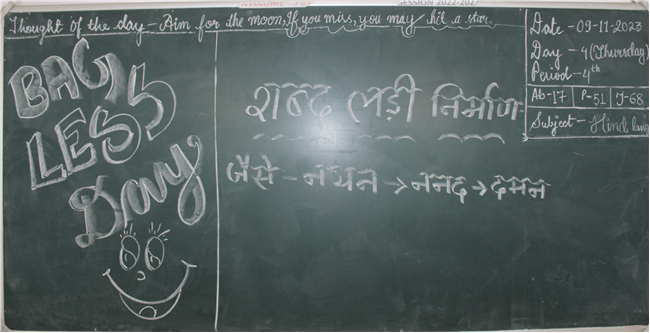 SESSION 2022-2023
Thought of the day - Aim for the moon, If you miss, you may hit a star.
Date - 09-11-2023
Day - 4 (Thursday)
Period - 4th
Ab-17 P-51 T-68
Subject - Hindi
BAG
LESS
Day
शब्द लड़ी निर्माण
जैसे - नयन → ननद → दमन